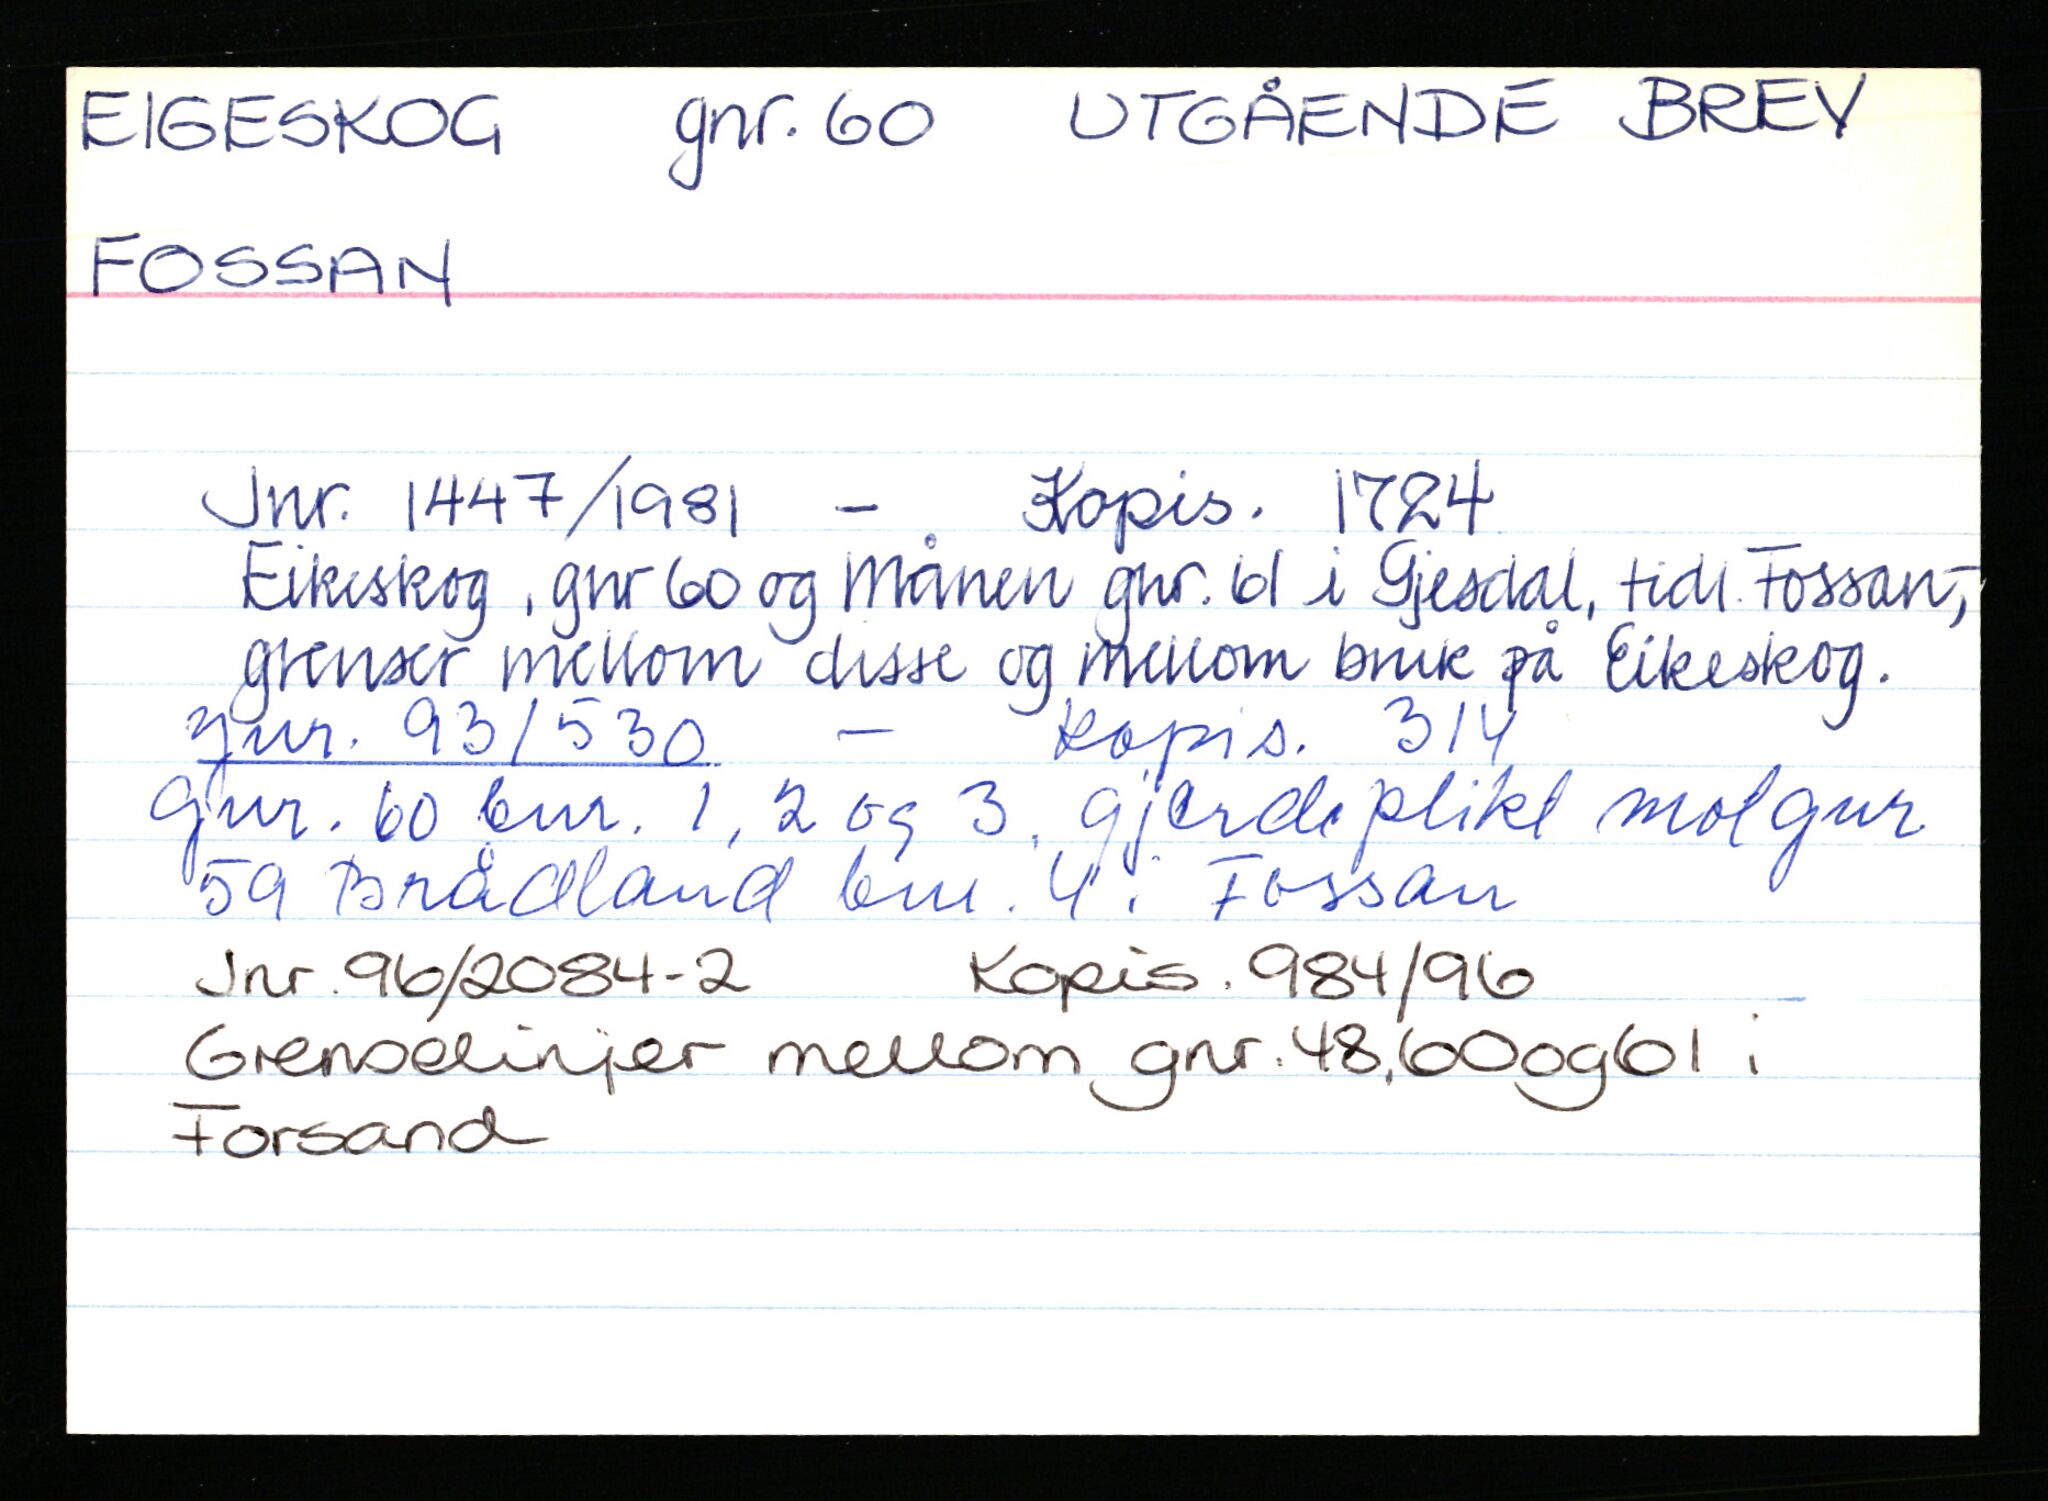 EIGESKOG gnr. 60 UTGÅENDE BREV
FOSSAN
Jnr. 1447/1981 - Kopis. 1724
Eikeskog, gnr 60 og Månen gnr. 61 i Gjesdal, tidl. Fossan,-
grenser mellom disse og mellom bruk på Eikeskog.
Jnr. 93/530 - Kopis. 314
Gnr. 60 bnr. 1, 2 og 3, gjerdeplikt mot gnr
59 Brådland bnr. 4 i Fossan
Jnr. 96/2084-2 Kopis. 984/96
Grenselinjer mellom gnr. 48, 60 og 61 i
Forsand